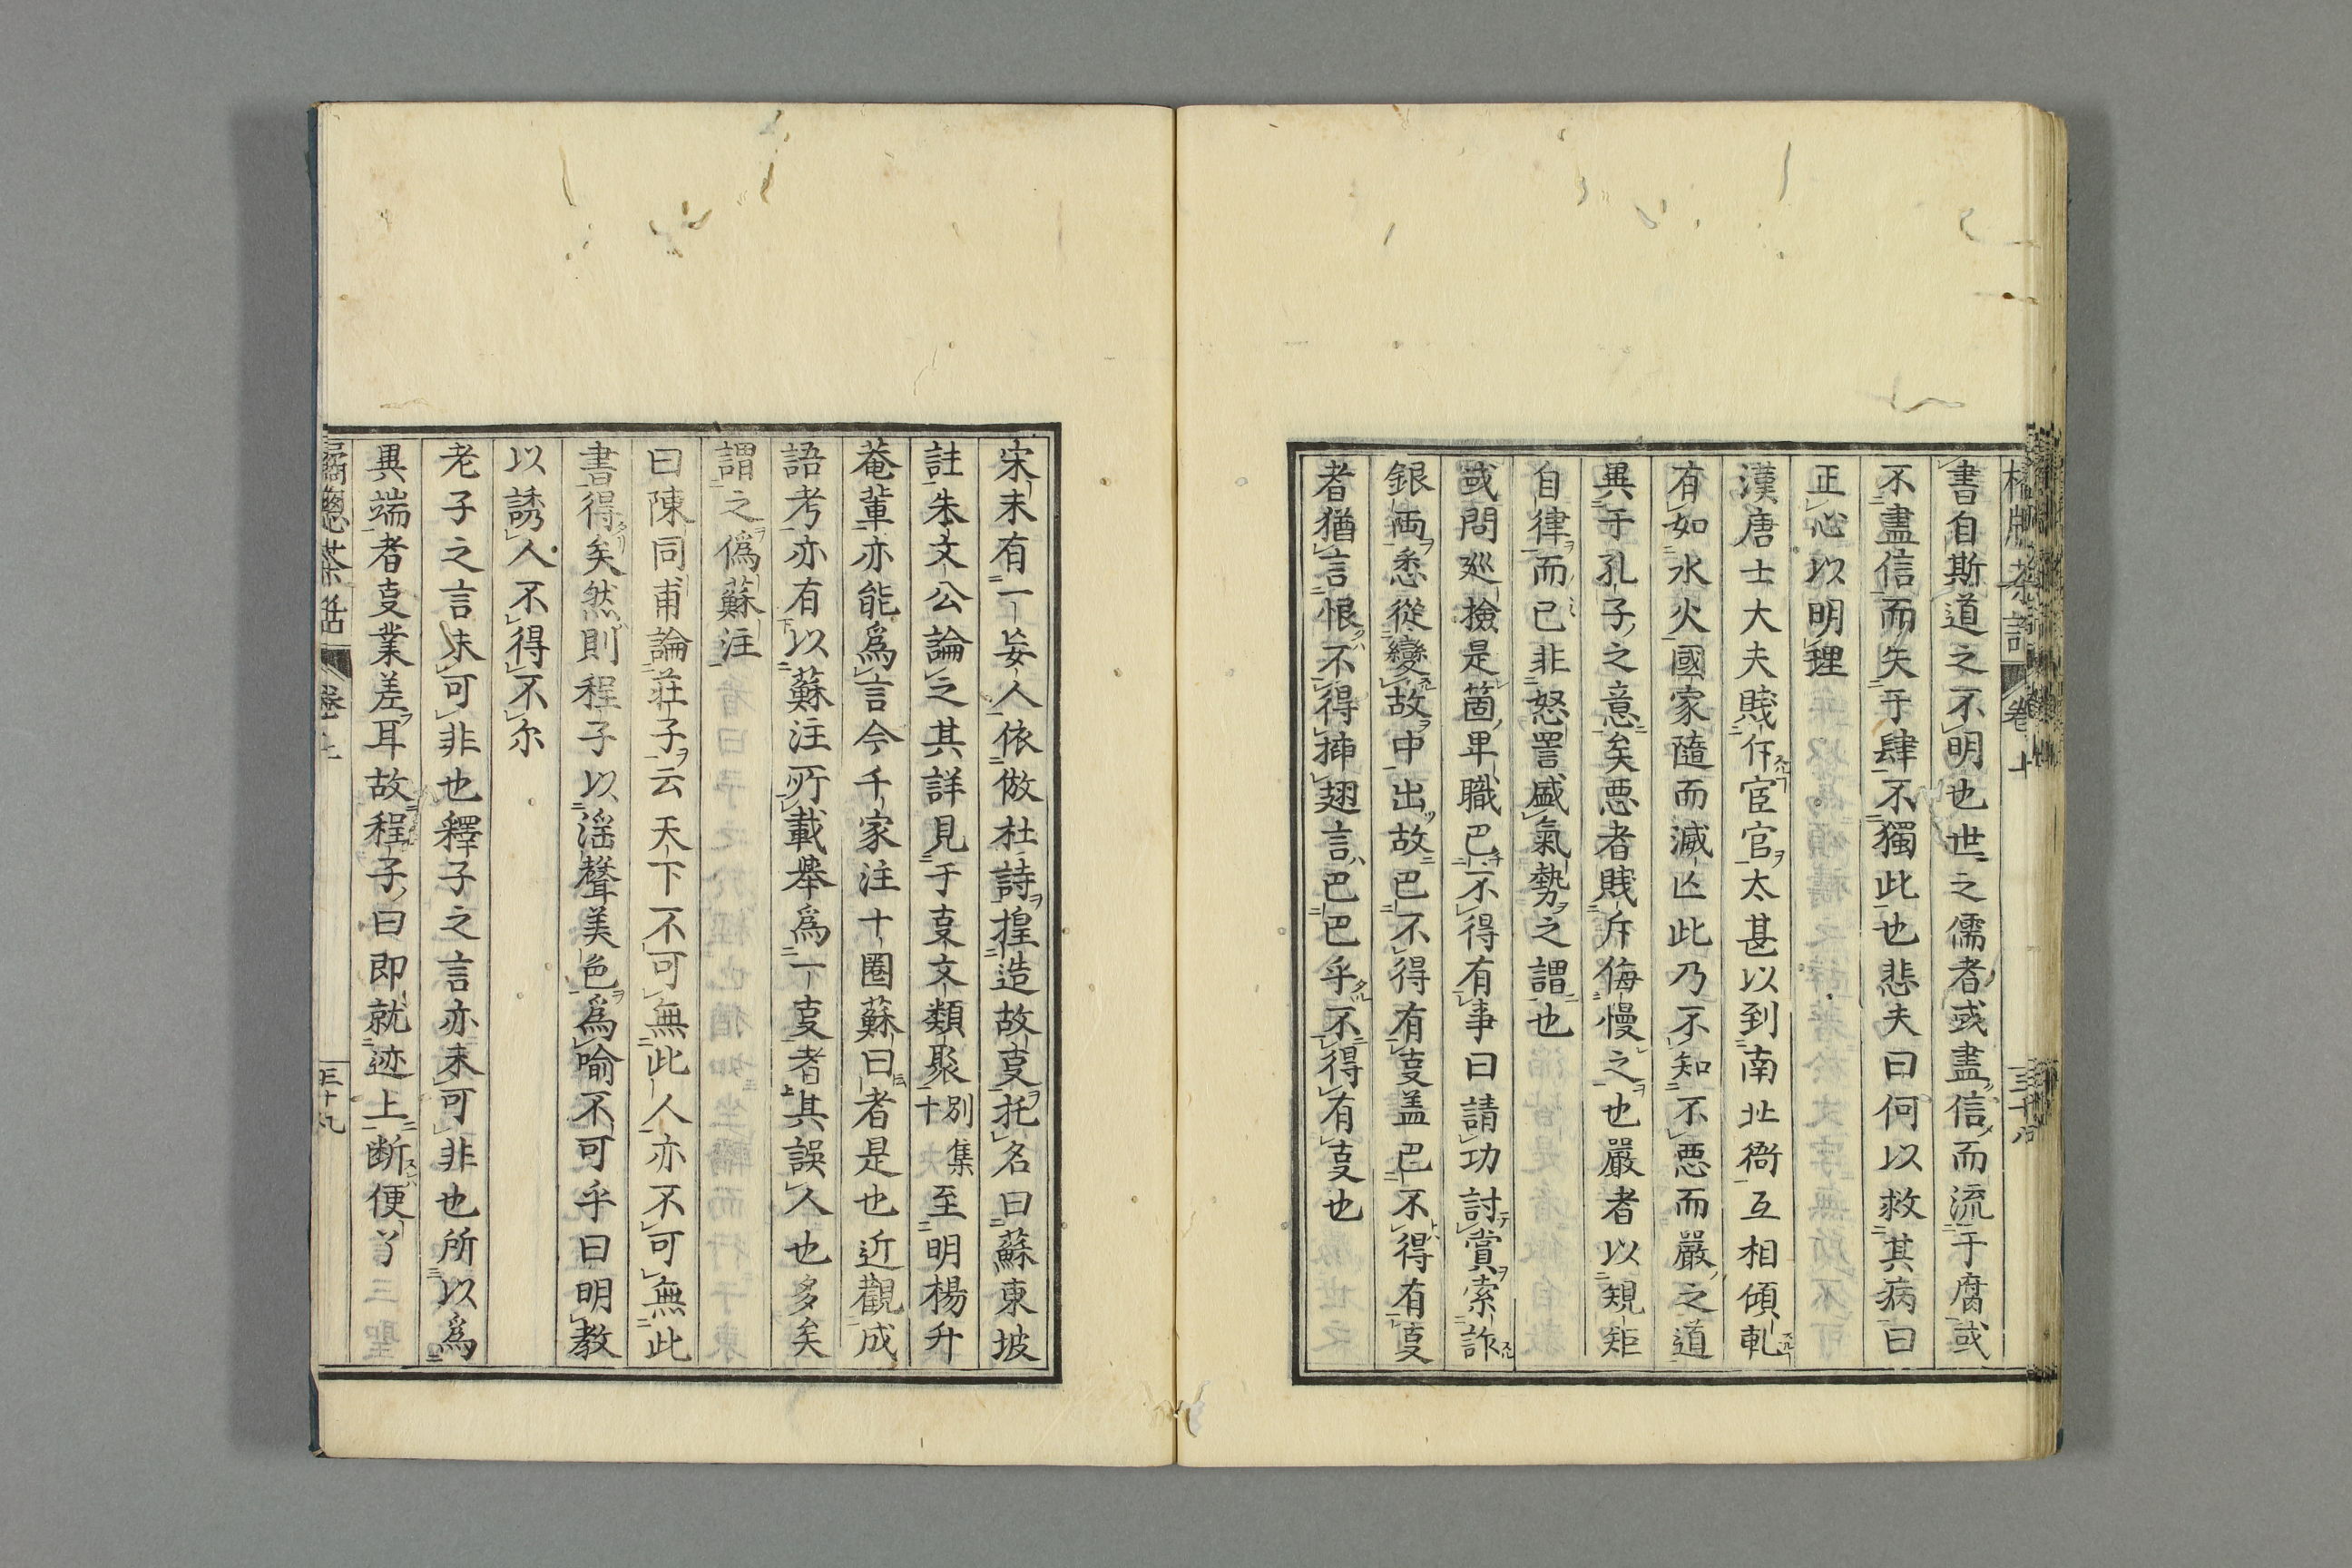 書自斯道之不明也世之儒者或盡信而流于腐或
不盡信而失于肆不獨此也悲夫曰何以救其病曰
正心以明理
漢唐士大夫賤斥宦官太甚以到南北衙互相傾軋
有如水火國家隨而滅亡此乃不知不悪而嚴之道
異于孔子之意矣悪者賤斥侮慢之也嚴者以規矩
自律而已非怒詈盛氣勢之謂也
或問巡撿是箇卑職巴不得有事曰請功討賞索詐
銀両悉從變故中出故巴不得有叓盖巴不得有叓
者猶言恨不得揷翅言巴巴乎不得有叓也
卷上
三十八
宋末有一妄人依倣杜詩揑造故叓托名曰蘇東坡
註朱文公論之其詳見于叓文類聚別集十至明楊升
菴輩亦能爲言今千家注十圈蘇曰者是也近觀成
語考亦有以蘇注所載舉爲一叓者其誤人也多矣
謂之僞蘇注
曰陳同甫論莊子云天下不可無此人亦不可無此
書得矣然則程子以滛聲美色爲喻不可乎曰明教
以誘人不得不尔
老子之言未可非也釋子之言亦未可非也所以爲
異端者叓業差耳故程子曰即就迹上断便了
卷上
三十九